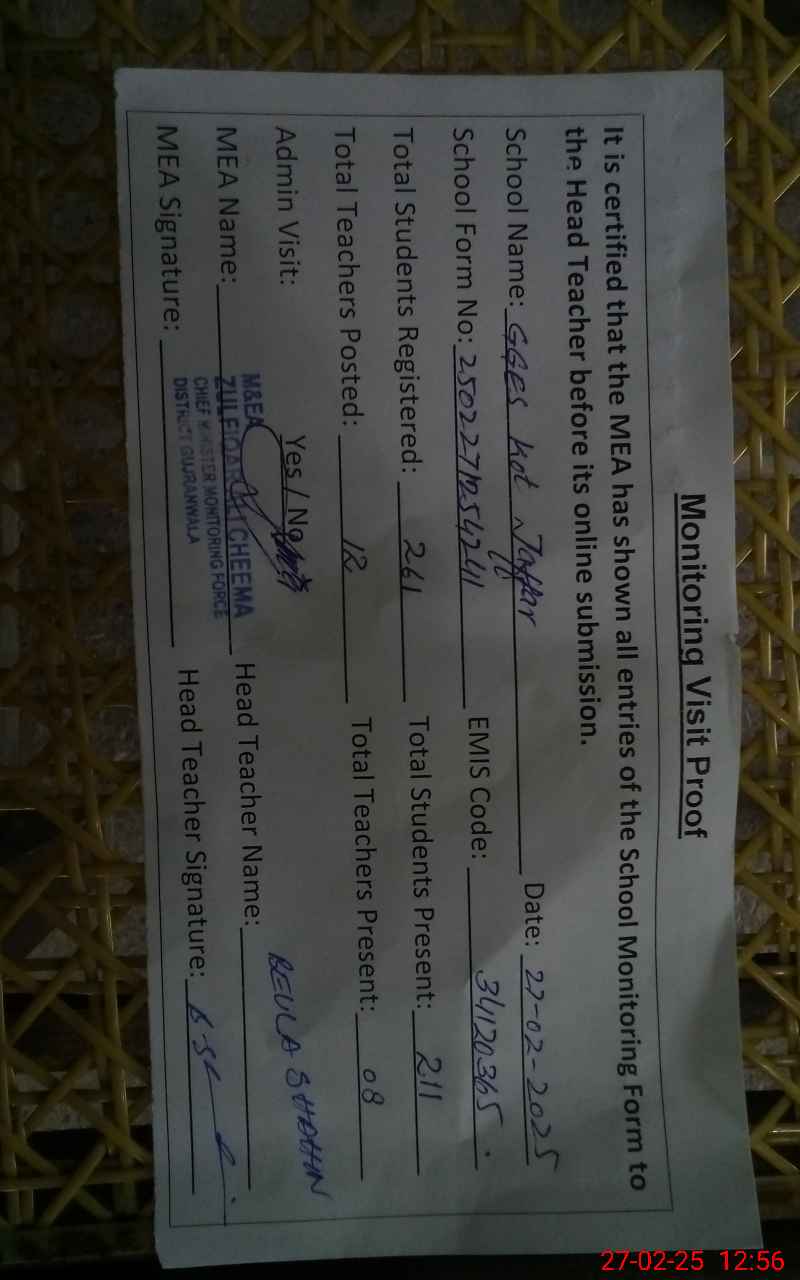 Monitoring Visit Proof
It is certified that the MEA has shown all entries of the School Monitoring Form to
the Head Teacher before its online submission.
School Name: GGES Kot Jaffar Date: 27-02-2025
School Form No: EMIS Code: 34120365
Total Students Registered: 261 Total Students Present: 211
Total Teachers Posted: 12 Total Teachers Present: 08
Admin Visit: Yes / No
MEA Name: Head Teacher Name: BEULA SHAHIN
M&EA
CHEEMA
CHIEF MINISTER MONITORING FORCE
DISTRICT GUJRANWALA
MEA Signature: Head Teacher Signature:
27-02-25 12:56